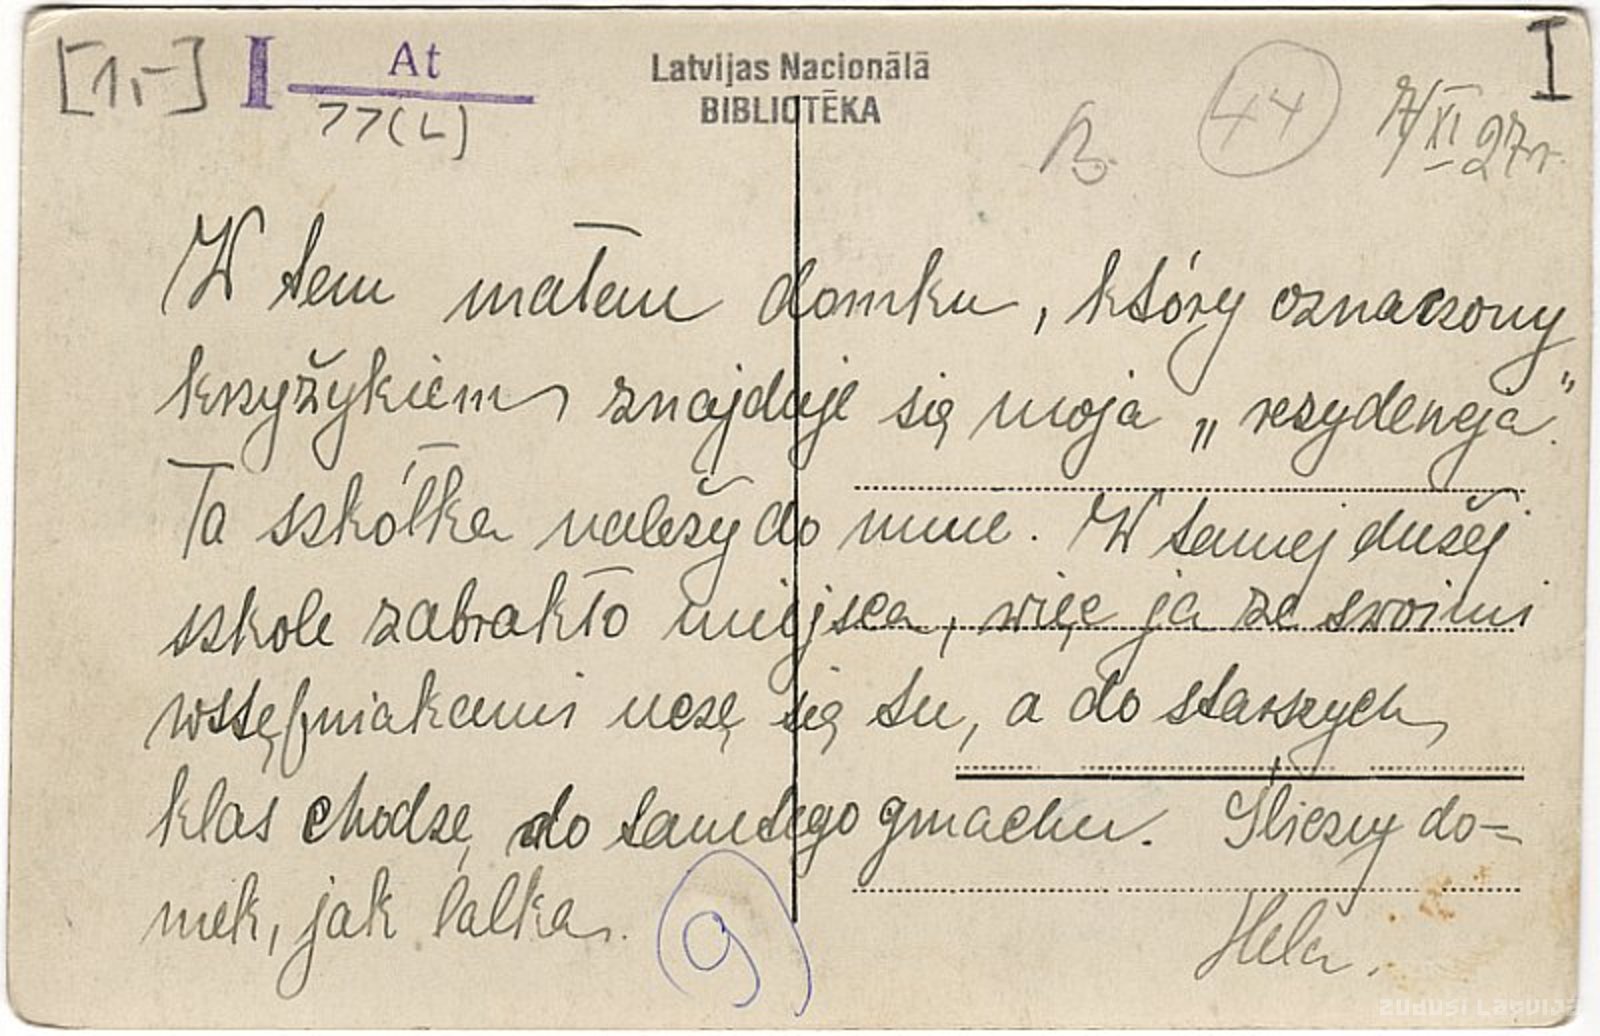 [1,-] I At
77(L)
Latvijas Nacionālā
BIBLIOTĒKA
B. 44 I
7/XI 27 r.
W tem małem domku, który oznaczony
krzyżykiem znajduje się moja „rezydencja".
Ta szkółka należy do mnie. W tamej dużej
szkole zabrakło miejsca, więc ja ze swoimi
wstępniakami uczę się tu, a do starszych
klas chodzę do tamtego gmachu. Śliczny do=
mek, jak lalka.
Hela.
9
ZUDUSI LATVIJA